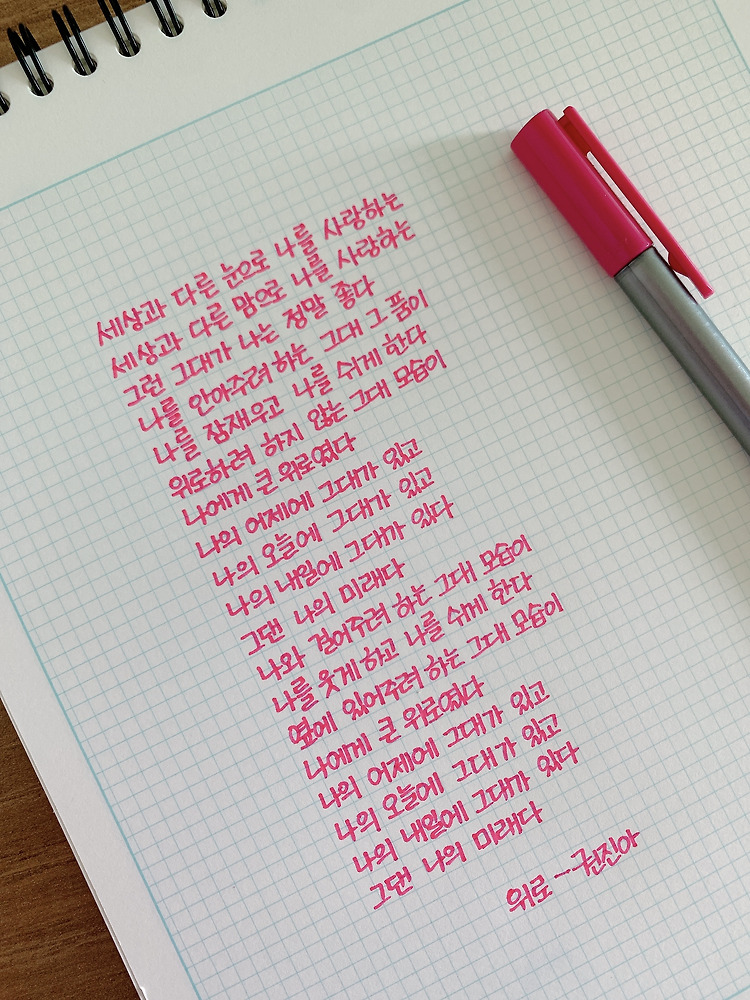 세상과 다른 눈으로 나를 사랑하는
세상과 다른 맘으로 나를 사랑하는
그런 그대가 나는 정말 좋다
나를 안아주려 하는 그대 그 품이
나를 잠재우고 나를 쉬게 한다
위로하려 하지 않는 그대 모습이
나에게 큰 위로였다
나의 어제에 그대가 있고
나의 오늘에 그대가 있고
나의 내일에 그대가 있다
그댄 나의 미래다
나와 걸어주려 하는 그대 모습이
나를 웃게 하고 나를 쉬게 한다
옆에 있어주려 하는 그대 모습이
나에게 큰 위로였다
나의 어제에 그대가 있고
나의 오늘에 그대가 있고
나의 내일에 그대가 있다
그댄 나의 미래다
위로 - 권진아